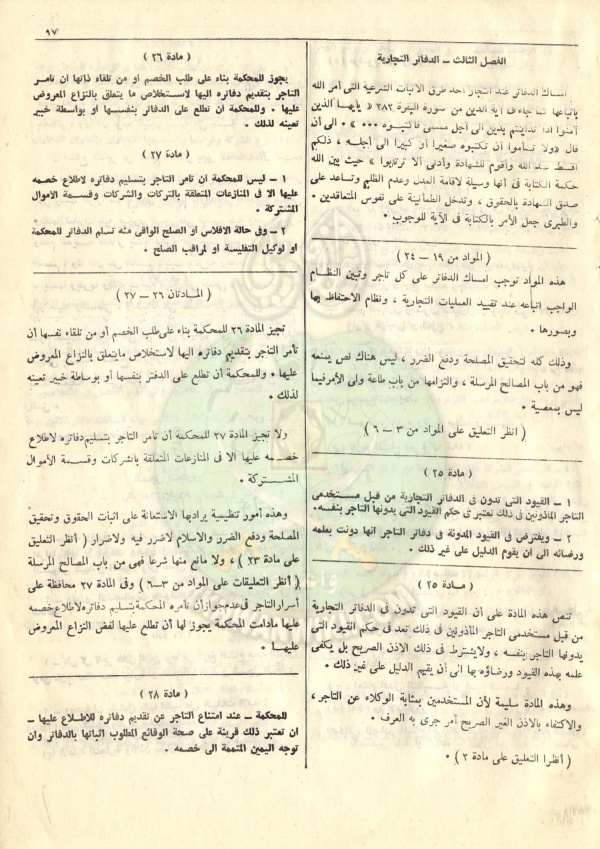 ٩٧
الفصل الثالث — الدفاتر التجارية
امساك الدفاتر عند التجار احد طرق الاثبات الشرعية التى أمر الله
باتباعها لما جاء فى آية الدين من سورة البقرة ٢٨٢ « يأيها الذين
آمنوا اذا تداينتم بدين الى أجل مسمى فاكتبوه ٠٠٠ » ٠ الى أن
قال « ولا تسأموا أن تكتبوه صغيرا أو كبيرا الى أجله ، ذلكم
أقسط عند الله وأقوم للشهادة وأدنى ألا ترتابوا » حيث بين الله
حكمة الكتابة فى أنها وسيلة لاقامة العدل وعدم الظلم وتساعد على
صدق الشهادة بالحقوق ، وتدخل الطمأنينة على نفوس المتعاقدين ٠
والطبرى جعل الأمر بالكتابة فى الآية للوجوب ٠
( المواد من ١٩ — ٢٤ )
هذه المواد توجب امساك الدفاتر على كل تاجر وتبين النظام
الواجب اتباعه عند تقييد العمليات التجارية ، ونظام الاحتفاظ بها
وبصورها ٠
وذلك كله لتحقيق المصلحة ودفع الضرر ، ليس هناك نص يمنعه
فهو من باب المصالح المرسلة ، والتزامها من باب طاعة ولى الأمر فيما
ليس بمعصية ٠
( انظر التعليق على المواد من ٣ — ٦ )
مادة ( ٢٥ )
١ — القيود التى تدون فى الدفاتر التجارية من قبل مستخدمى
التاجر المأذونين فى ذلك تعتبر فى حكم القيود التى يدونها التاجر بنفسه.
٢ — ويفترض فى القيود المدونة فى دفاتر التاجر انها دونت بعلمه
ورضائه الى ان يقوم الدليل على غير ذلك ٠
( مادة ٢٥ )
تنص هذه المادة على أن القيود التى تدون فى الدفاتر التجارية
من قبل مستخدمى التاجر المأذونين فى ذلك تعد فى حكم القيود التى
يدونها التاجر بنفسه ، ولايشترط فى ذلك الاذن الصريح بل يكفى
علمه بهذه القيود ورضاؤه بها الى أن يقيم الدليل على غير ذلك ٠
وهذه المادة سليمة لأن المستخدمين بمثابة الوكلاء عن التاجر ،
والاكتفاء بالاذن الغير الصريح أمر جرى به العرف ٠
( أنظرا التعليق على مادة ٢ ) ٠
( مادة ٢٦ )
يجوز للمحكمة بناء على طلب الخصم او من تلقاء ذاتها ان تامر
التاجر بتقديم دفاتره اليها لاستخلاص ما يتعلق بالنزاع المعروض
عليها ٠ وللمحكمة ان تطلع على الدفاتر بنفسها او بواسطة خبير
تعينه لذلك ٠
( مادة ٢٧ )
١ — ليس للمحكمة ان تامر التاجر بتسليم دفاتره لاطلاع خصمه
عليها الا فى المنازعات المتعلقة بالتركات والشركات وقسمة الأموال
المشتركة ٠
٢ — وفى حالة الافلاس او الصلح الواقى منه تسلم الدفاتر للمحكمة
او لوكيل التفليسة او لمراقب الصلح ٠
( المادتان ٢٦ — ٢٧ )
تجيز المادة ٢٦ للمحكمة بناء على طلب الخصم أو من تلقاء نفسها أن
تأمر التاجر بتقديم دفاتره اليها لاستخلاص مايتعلق بالنزاع المعروض
عليها ٠ وللمحكمة أن تطلع على الدفتر بنفسها أو بوساطة خبير تعينه
لذلك ٠
ولا تجيز المادة ٢٧ للمحكمة أن تأمر التاجر بتسليم دفاتره لاطلاع
خصمه عليها الا فى المنازعات المتعلقة بالشركات وقسمة الأموال
المشتركة ٠
وهذه أمور تنظيمية يراد بها الاستعانة على اثبات الحقوق وتحقيق
المصلحة ودفع الضرر والاسلام لاضرر فيه ولاضرار ( أنظر التعليق
على مادة ٢٣ ) ، ولا مانع منها شرعا فهى من باب المصالح المرسلة
( أنظر التعليقات على المواد من ٣—٦ ) وفى المادة ٢٧ محافظة على
أسرار التاجر فى عدم جواز أن تامره المحكمة بتسليم دفاتره لاطلاع خصمه
عليها مادامت المحكمة يجوز لها أن تطلع عليها لفض النزاع المعروض
عليها ٠
( مادة ٢٨ )
للمحكمة — عند امتناع التاجر عن تقديم دفاتره للاطلاع عليها —
ان تعتبر ذلك قرينة على صحة الوقائع المطلوب اثباتها بالدفاتر وان
توجه اليمين المتممة الى خصمه ٠